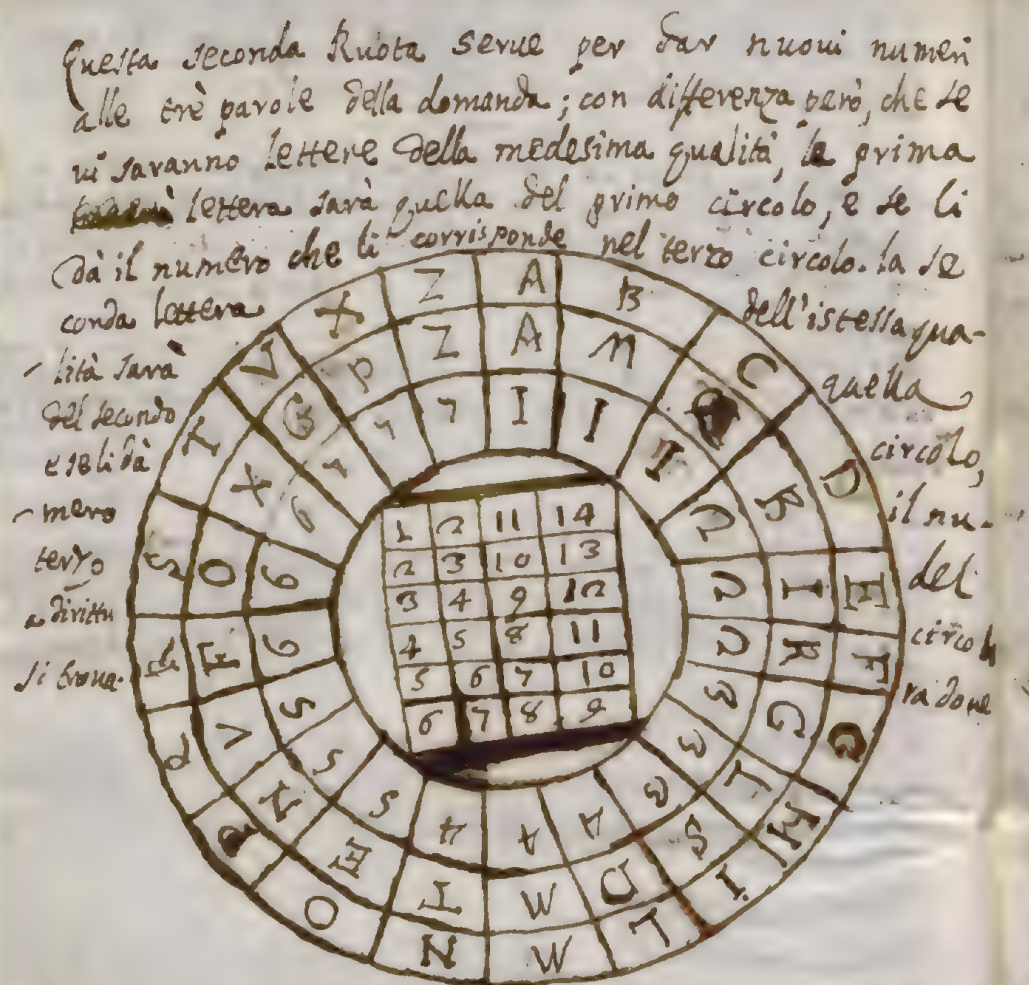 Questa seconda Ruota serue per dar nuoui numeri
alle trè parole della domanda; con differenza però, che se
ui saranno lettere della medesima qualità, la prima
lettera sarà quella del primo circolo, e se li
dà il numero che li corrisponde nel terzo circolo. la se
conda lettera dell'istessa qua-
lità sarà quella
del secondo circolo,
e se li dà il nu-
mero del
terzo circolo
a dirittu ra doue
si troua.
A B C D E F G H I L M N O P Q R S T V X Z
A M B I K G L S D M T E N V H O X G P Z
I I I 2 2 2 3 3 3 4 4 4 5 5 5 6 6 6 7 7 7
1 2 11 14
2 3 10 13
3 4 9 12
4 5 8 11
5 6 7 10
6 7 8 9